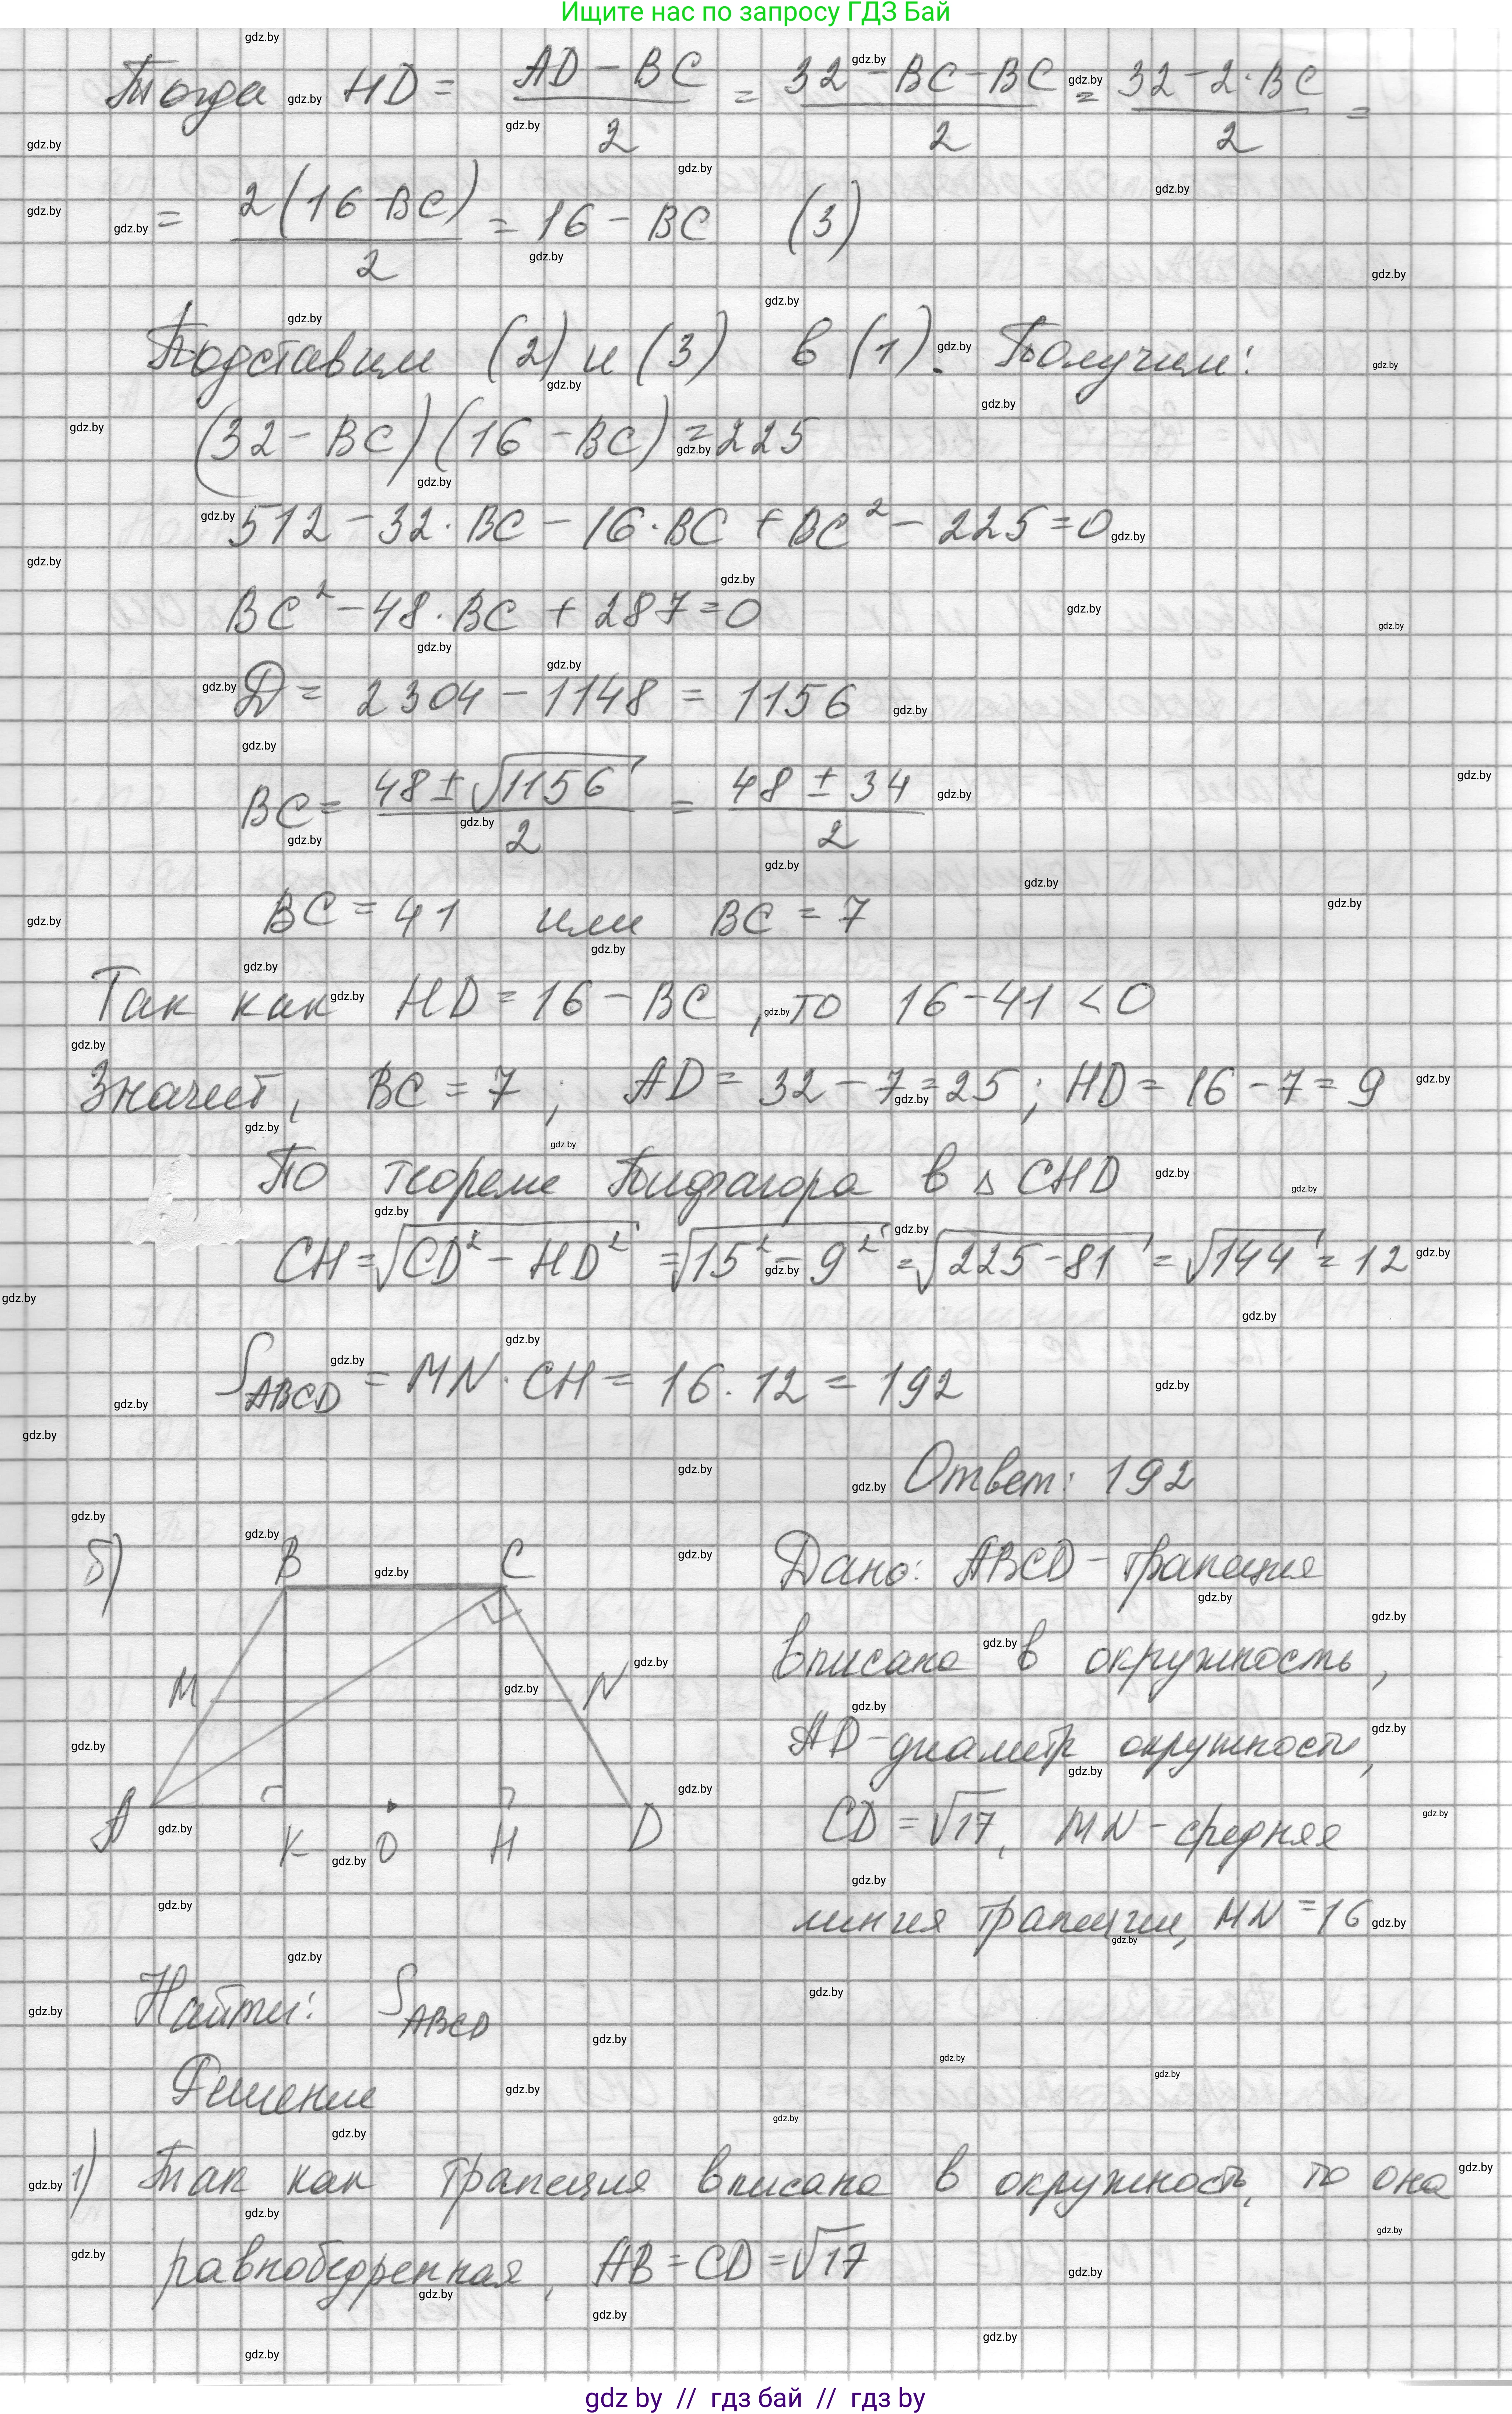 Ищите нас по запросу ГДЗ Бай
Тогда HD = (AD - BC)/2 = (32 - BC - BC)/2 = (32 - 2·BC)/2 =
= 2(16 - BC)/2 = 16 - BC (3)
Подставим (2) и (3) в (1). Получим:
(32 - BC)(16 - BC) = 225
512 - 32·BC - 16·BC + BC² - 225 = 0
BC² - 48·BC + 287 = 0
D = 2304 - 1148 = 1156
BC = (48 ± √1156)/2 = (48 ± 34)/2
BC = 41 или BC = 7
Так как HD = 16 - BC, то 16 - 41 < 0
Значит, BC = 7; AD = 32 - 7 = 25; HD = 16 - 7 = 9
По теореме Пифагора в △CHD
CH = √(CD² - HD²) = √(15² - 9²) = √(225 - 81) = √144 = 12
S ABCD = MN·CH = 16·12 = 192
Ответ: 192
б)
B C
M N
A K O H D
Дано: ABCD - трапеция
вписана в окружность,
AD - диаметр окружности,
CD = √17, MN - средняя
линия трапеции, MN = 16
Найти: S ABCD
Решение
1) Так как трапеция вписана в окружность, то она
равнобедренная, AB = CD = √17
gdz by // гдз бай // гдз by